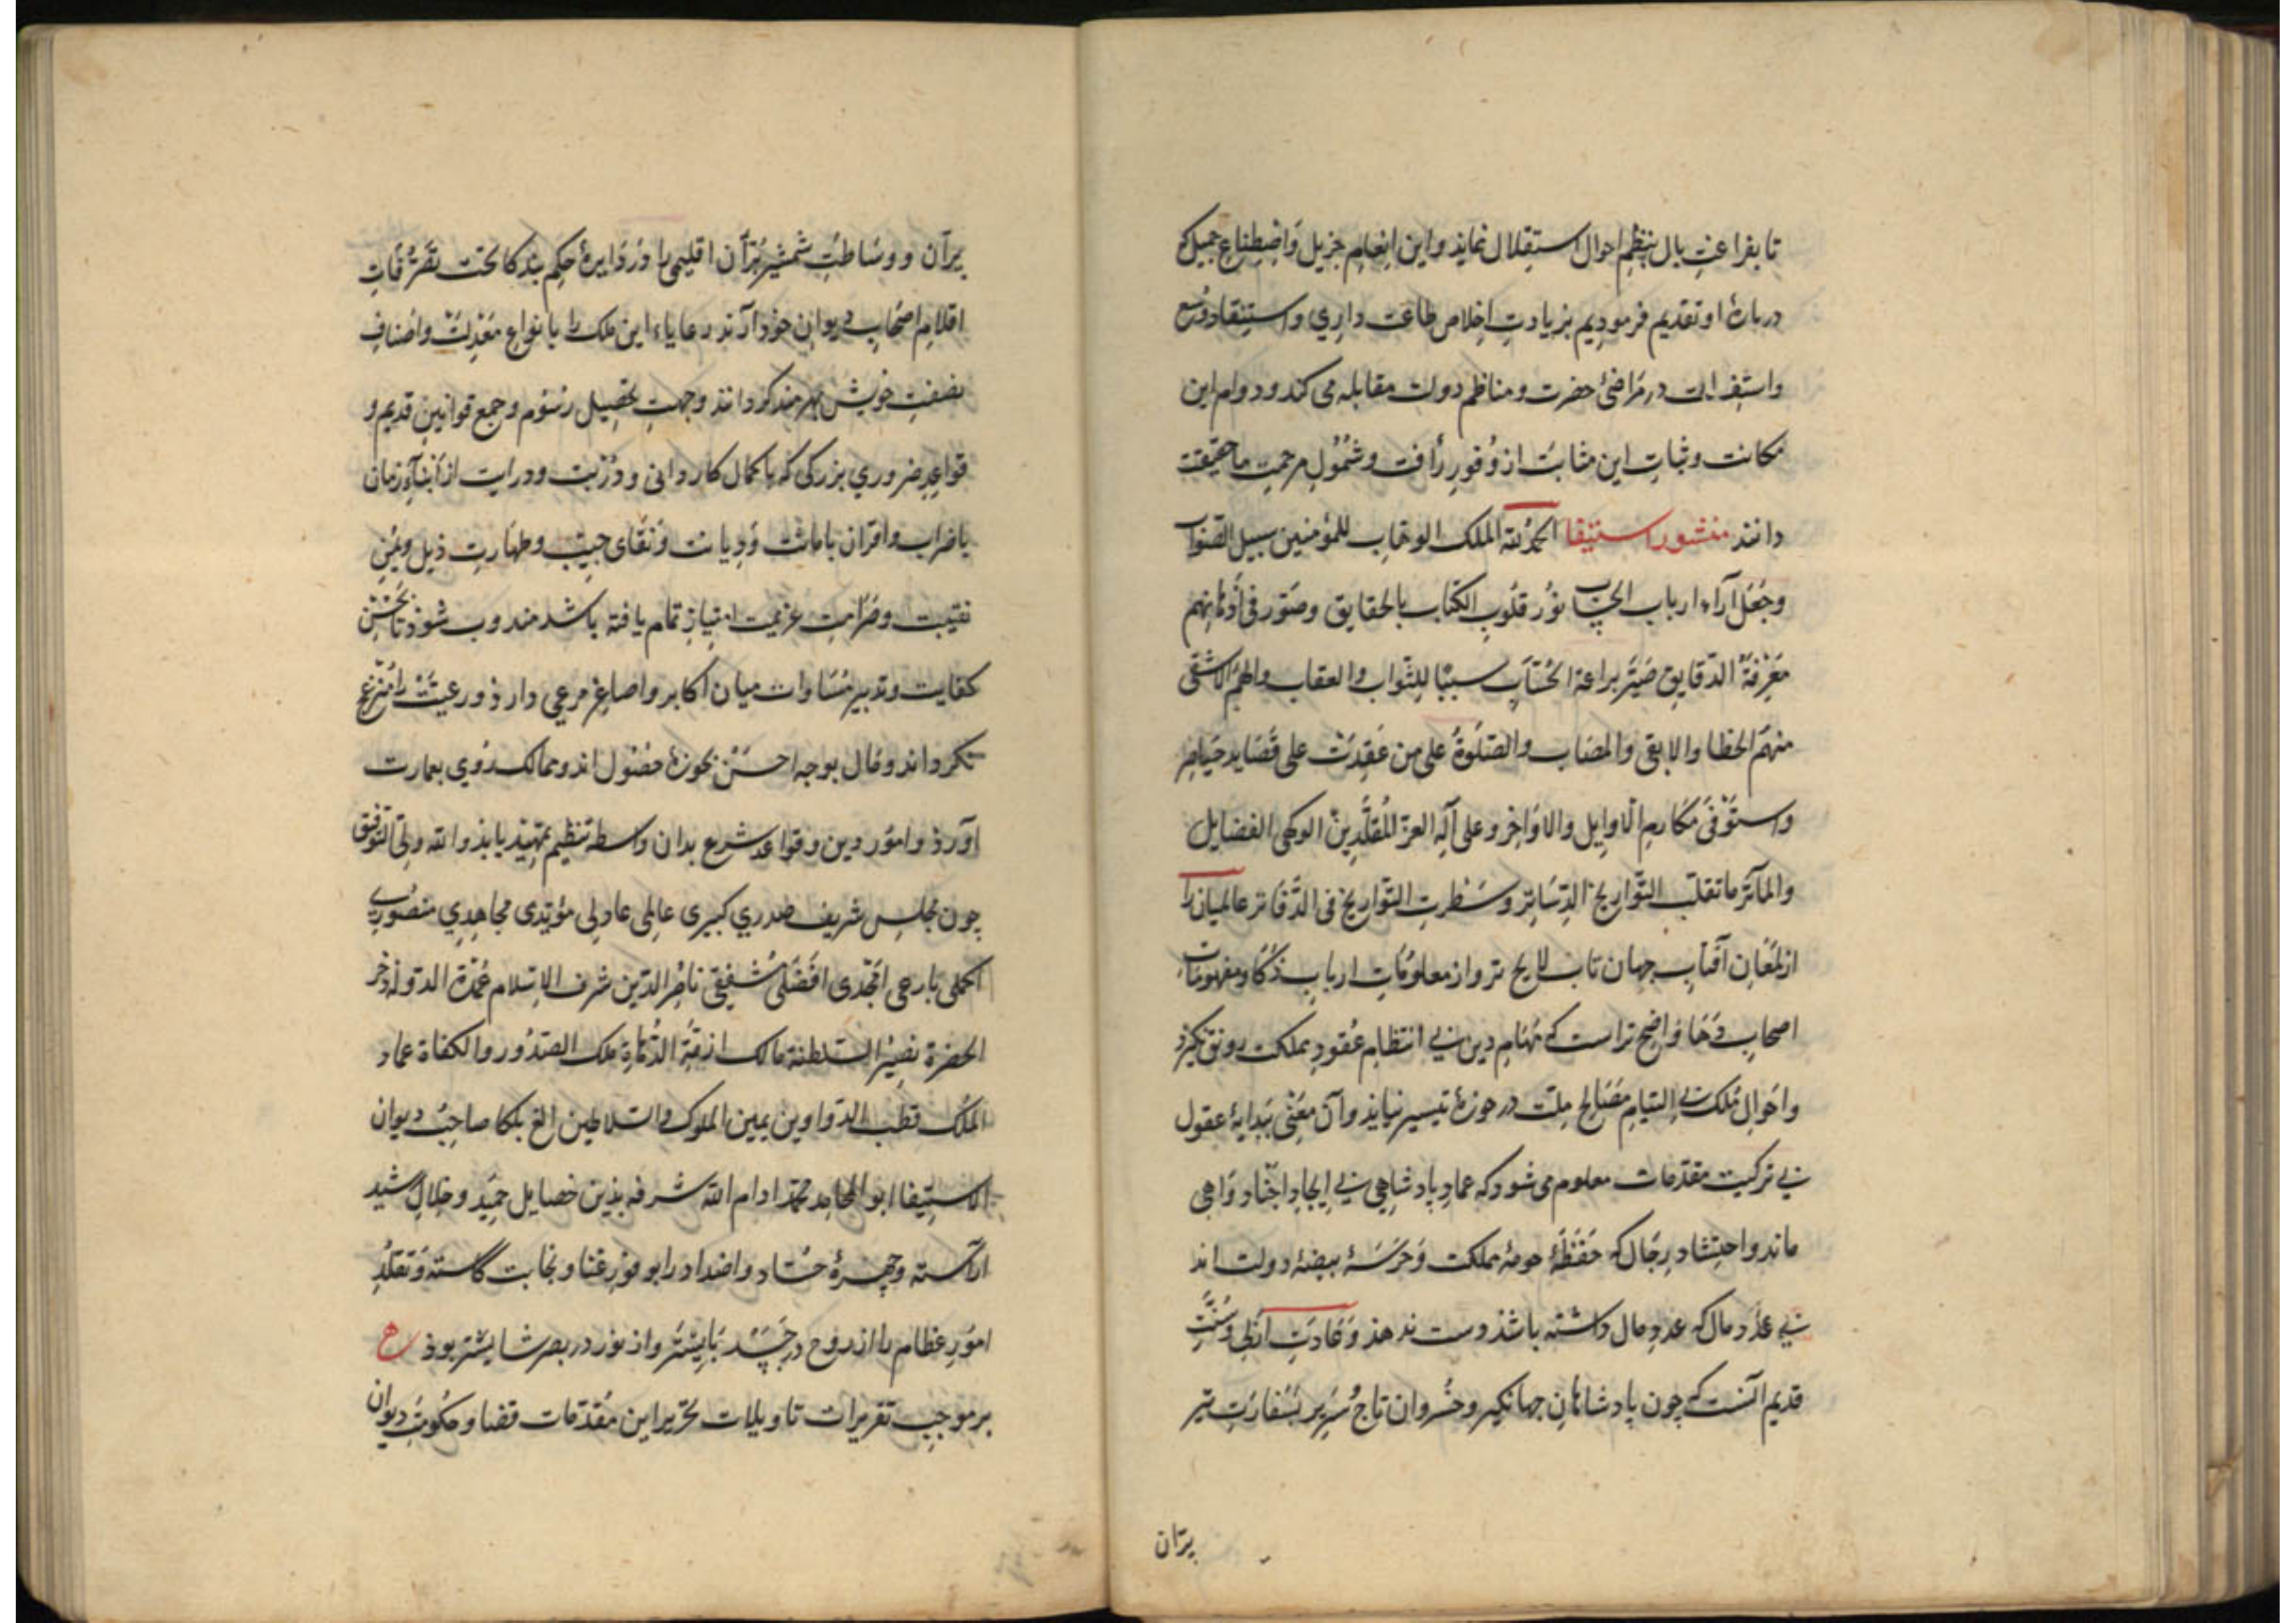 تا بفراغت بال بنظم احوال استقلال نماید و این انعام جزیل و اصطناع جمیل که
دربارهٔ او تقدیم فرمودیم بزیادت اخلاص طاعت داری و استنفاد وسع
و استغراق در مراضیٔ حضرت و مناظم دولت مقابله می کند و دوام این
مکانت و ثبات این مثابت از وفور رأفت و شمول مرحمت ما حقیقت
دانند منشور استیفا الحمدلله الملک الوهاب للمؤمنین سبیل الصواب
وجعل آراء ارباب الحساب نور قلوب الکتاب بالحقایق وصور فی أذهانهم
معرفة الدقایق صیر براعة الحساب سببا للثواب والعقاب والهم الاشقی
منهم الخطا والابقی والمصاب والصلوة علی من عقدت علی قصاید
واستوفی مکارم الاوایل والاواخر وعلی آله الغر المقلدین الفضایل
والمآثر ما تقلب التواریخ وسطرت التواریخ فی الدفاتر عالمیان را
از لمعان آفتاب جهان تاب لایح تر و از معلومات ارباب ذکا و مفهومات
اصحاب دها واضح تر است که مهام دین بی انتظام عقود مملکت رونق نگیرذ
و احوال ملک بی التیام مصالح ملت در حوزهٔ تیسیر نیایذ و آن معنی ببدایهٔ عقول
بی ترکیب مقدمات معلوم می شود که عماد پادشاهی بی ایجاد اجناد واهی
ماند و احتشاد رجال که حفظهٔ حومهٔ مملکت و حرسهٔ بیضهٔ دولت اند
بی عدد مال که عدد مال داشته باشذ دست ندهذ و عادت ازلی و سنت
قدیم آنست که چون پادشاهان جهانگیر و خسروان تاج سریر بسفارت تیر
پران
پران و وساطت شمشیر بران اقلیمی را در دایرهٔ حکم بندگان تحت تصرفات
اقلام اصحاب دیوان خوذ آرند رعایاء این ملک را بانواع معدلت و اصناف
نصفت خویش بهره مند گردانند و جهت تحصیل رسوم و جمع قوانین قدیم و
قواعد ضروری بزرگی که باکمال کاردانی و دربت و درایت از ابناء زمان
باضراب و اقران بامانت و دیانت و نقای جیب و طهارت ذیل و یمن
نقیبت و صرامت عزیمت امتیاز تمام یافته باشد مندوب شوذ تا بحسن
کفایت و تدبیر مساوات میان اکابر و اصاغر مرعی دارذ و رعیت را منزعج
نگرداند و مال بوجه احسن بحوزهٔ حصول اند و ممالک روی بعمارت
آورذ و امور دین و قواعد شرع بدان واسطه تنظیم تمهید یابذ والله ولی التوفیق
چون مجلس شریف صدری کبیری عاملی عادلی مؤیدی مجاهدی منصوری
اکملی بارعی امجدی افضلی مشفقی ناصر الدین شرف الاسلام عمدة الدوله ذخر
الحضرة نصیر السلطنة مالک ازمة الدهاة ملک الصدور والکفاة عماد
الملک قطب الدواوین یمین الملوک والسلاطین الغ بلکا صاحب دیوان
الاستیفا ابو المحامد محمد ادام الله شرفه بذین خصایل حمید و خلال رشید
آراسته و چهرهٔ حساد و اضداد را بوفور غنا و نجابت کاسته و تقلد
امور عظام را از روح در جسد بایسته تر و از نور در بصر شایسته تر بوذ
بر موجب تقریرات تاویلات تحریر این مقدمات قضا و حکومت دیوان